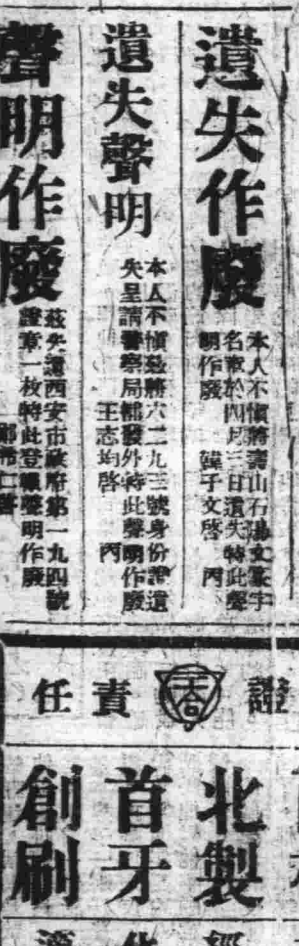 遺失作廢
本人不慎將壽山石陽文篆字
名章於四月三日遺失特此聲
明作廢　韓子文啓　丙
遺失聲明
本人不慎將六二九三號身份證遺
失呈請警察局補發外特此聲明作廢
王志均啓　丙
聲明作廢
茲失遺西安市政府第一九四號
證章一枚特此登報聲明作廢
證
責任
北製
首牙
創刷